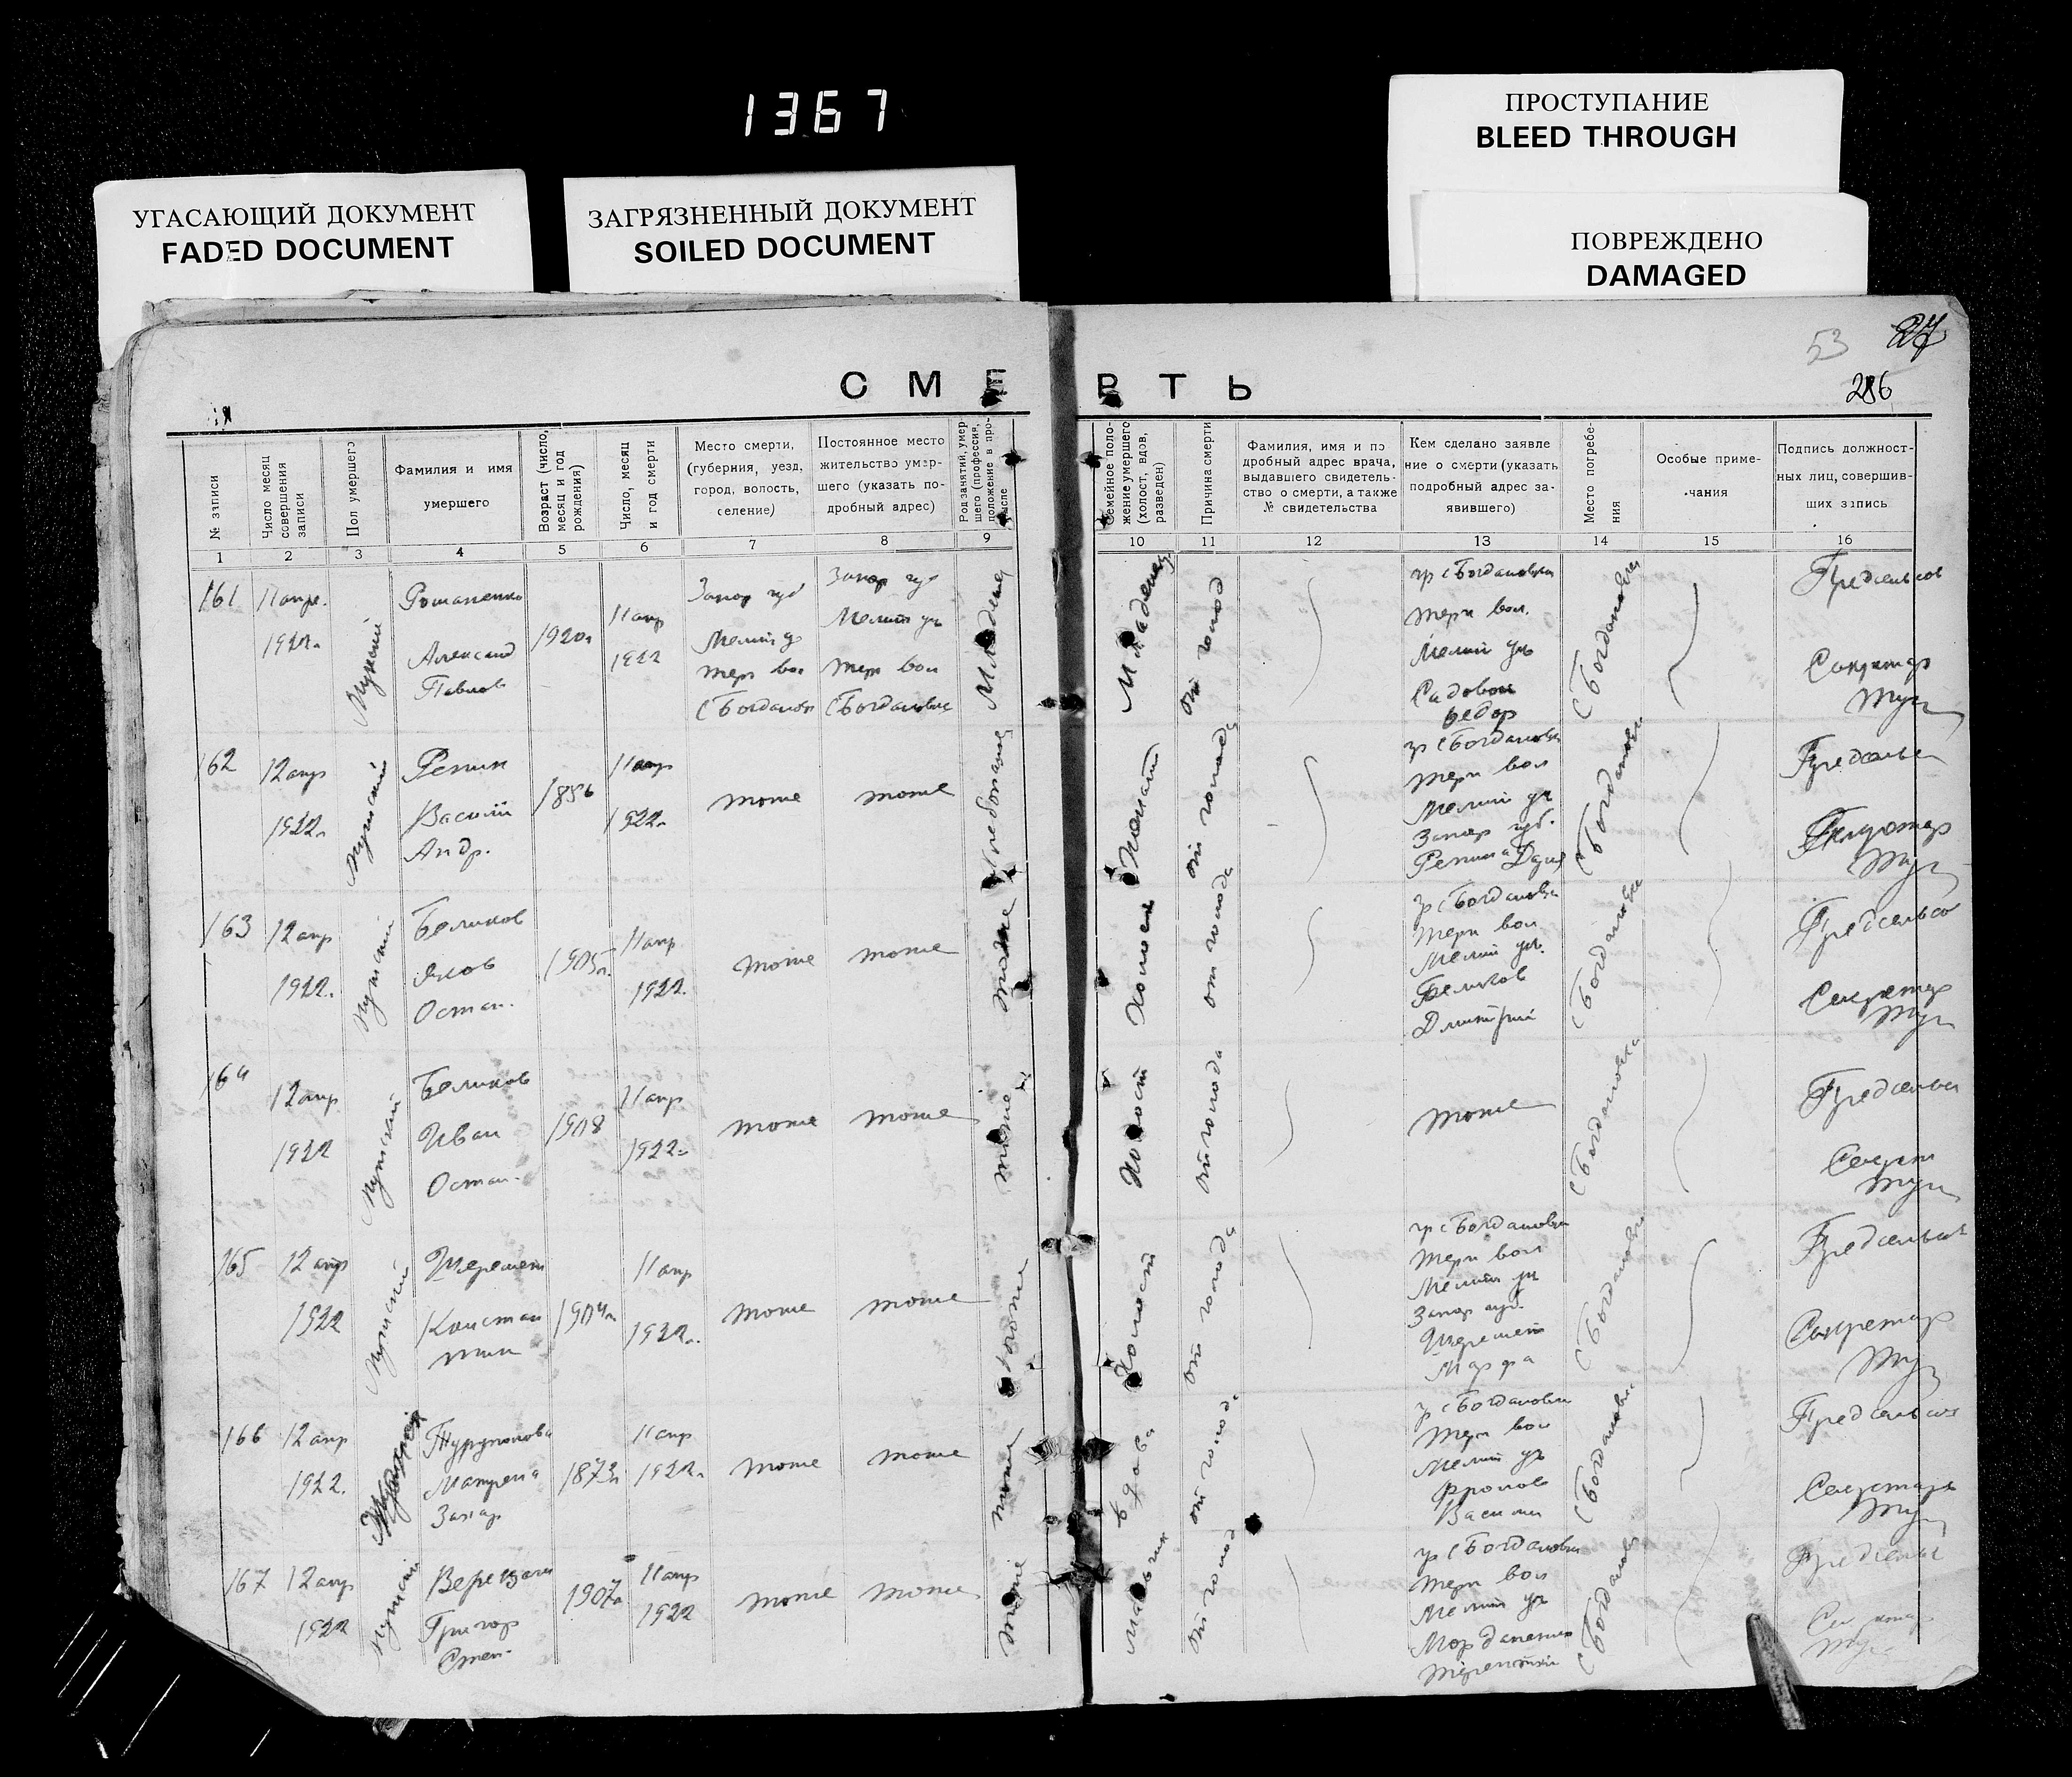 1367
ПРОСТУПАНИЕ
BLEED THROUGH
УГАСАЮЩИЙ ДОКУМЕНТ
FADED DOCUMENT
ЗАГРЯЗНЕННЫЙ ДОКУМЕНТ
SOILED DOCUMENT
ПОВРЕЖДЕНО
DAMAGED
53 27
286
СМЕРТЬ
№ записи
Число месяц
совершения
записи
Пол умершего
Фамилия и имя
умершего
Возраст (число,
месяц и год
рождения)
Число, месяц
и год смерти
Место смерти,
(губерния, уезд,
город, волость,
селение)
Постоянное место
жительство умер-
шего (указать по-
дробный адрес)
Род занятий, умер-
шего (профессия,
положение в про-
мысле
Семейное поло-
жение умершего
(холост, вдов,
разведен)
Причина смерти
Фамилия, имя и по
дробный адрес врача,
выдавшего свидетель-
ство о смерти, а также
№ свидетельства
Кем сделано заявле
ние о смерти (указать
подробный адрес за-
явившего)
Место погребе-
ния
Особые приме-
чания
Подпись должност-
ных лиц, совершив-
ших запись
1 2 3 4 5 6 7 8 9 10 11 12 13 14 15 16
161
11 апре.
1922г.
Мужский
Романенко
Александ
Павлов
1920г
11 апр
1922
Запор губ
Мелит у
Терп вол
с Богданов
Запор губ
Мелит уъ
Терп вол
с Богдановка
Младенец
Младенец
от голода
гр с Богдановки
Терп вол.
Мелит уъ
Садовой
Федор
с Богдановка
Предсельсов
Секретар
162
12 апр
1922г.
Мужский
Репин
Василий
Андр.
1856
11 апр
1922г.
тоже
тоже
Хлебопашец
Женат
от голода
гр с Богдановки
Терп вол
Мелит уъ
Запор губ.
Репина Дария
с Богдановка
Предсельс
Секретар
163
12 апр
1922.
Мужский
Беликов
Яков
Остап.
1905г.
11 апр
1922.
тоже
тоже
тоже
Холост
от голода
гр с Богдановки
Терп вол
Мелит уъ.
Беликов
Дмитрий
с Богдановка
Предсельсо
Секретар
164
12 апр
1922
Мужский
Беликов
Иван
Остап.
1908
11 апр
1922г
тоже
тоже
тоже
Холост
от голода
тоже
с Богдановка
Предсельс
Секрет
165
12 апр
1922
Мужский
Шеремет
Констан
тин
1904г
11 апр
1922г.
тоже
тоже
тоже
Холост
от голода
гр с Богдановки
Терп вол
Мелит уъ
Запор губ.
Шеремет
Марфа
с Богдановка
Предсельсов
Секретар
166
12 апр
1922.
Матрена
Захар
1873г
11 апр
1922г.
тоже
тоже
тоже
Вдова
от голода
гр с Богдановки
Терп вол
Мелит уъ
Фролов
Василий
с Богдановка
Предсельсов
Секретарь
167
12 апр
1922
Мужский
Григор
Степ.
1907г
11 апр
1922
тоже
тоже
тоже
Мальчик
от голода
гр с Богдановки
Терп вол
Мелит уъ
Терентий
с Богдановка
Предсельс
Секретар